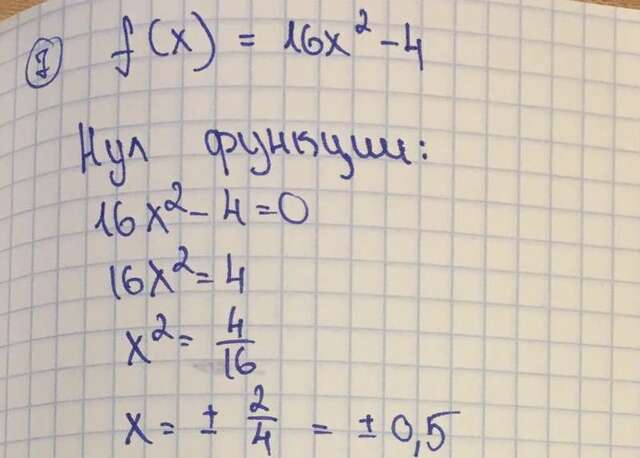 ⑦ f(x) = 16x² - 4
Нул функции:
16x² - 4 = 0
16x² = 4
x² = 4/16
x = ± 2/4 = ± 0,5